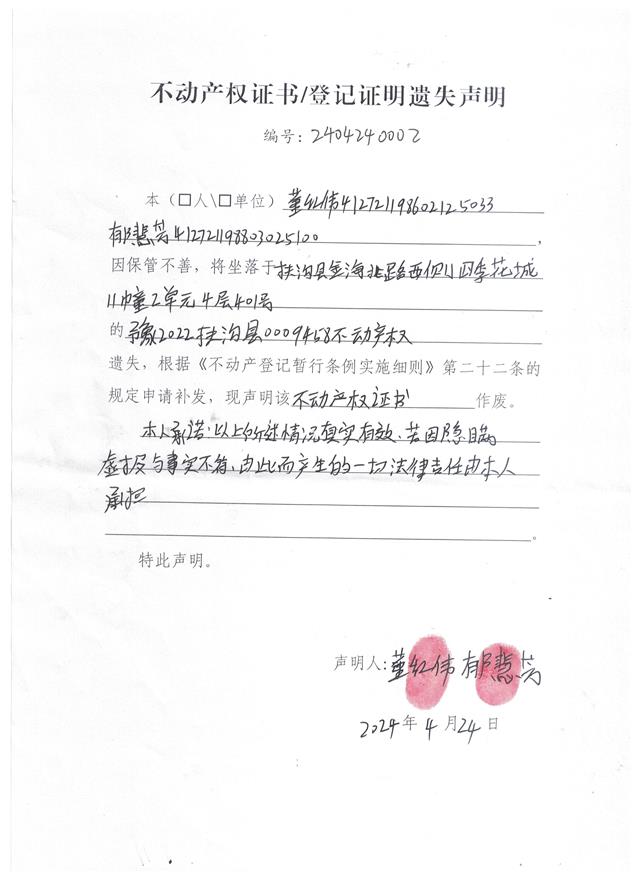 不动产权证书/登记证明遗失声明
编号：2404240002
本（□人\□单位）董红伟412721198602125033
郁慧芳412721198803025100，
因保管不善，将坐落于扶沟县金海北路西侧四季花城
11幢2单元4层401号
的豫2022扶沟县0009458不动产权
遗失，根据《不动产登记暂行条例实施细则》第二十二条的
规定申请补发，现声明该不动产权证书作废。
本人承诺：以上所述情况真实有效、若因隐瞒
虚报与事实不符、由此而产生的一切法律责任由本人
承担
。
特此声明。
声明人：董红伟 郁慧芳
2024年4月24日